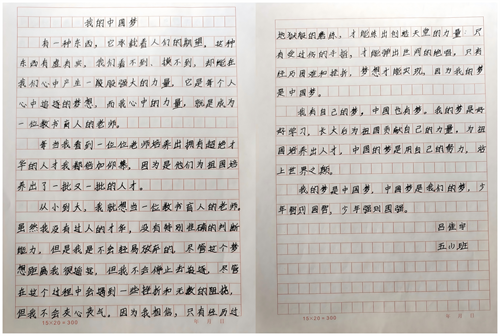 我的中国梦
有一种东西，它承载着人们的期望。这种
东西有虚有实，我们看不到，摸不到，却能在
我们心中产生一股股强大的力量，它是每个人
心中追逐的梦想。而我心中的力量，就是成为
一位教书育人的老师。
每当我看到一位位老师培养出拥有超绝才
华的人才我都倍加仰慕，因为是他们为祖国培
养出了一批又一批的人才。
从小到大，我就想当一位教书育人的老师，
虽然我没有过人的才华，没有特别准确的判断
能力，但是我是不会轻易放弃的。尽管这个梦
想距离我很遥远，但我不会停止去追逐，尽管
在这个过程中会碰到一些挫折和无数的阻挠，
但我不会灰心丧气，因为我相信，只有经历过
15×20=300
年 月 日
地狱般的磨练，才能练出创造天堂的力量，只
有受过伤的手指，才能弹出世间的绝唱，只有
经历困难和挫折，梦想才能实现，因为我的梦
是中国梦。
我有自己的梦，中国也有梦。我的梦是好
好学习，长大后为祖国贡献自己的力量，为祖
国培养出人才，中国的梦是用自己的努力，站
上世界之巅。
我的梦是中国梦，中国梦是我们的梦，少
年智则国智，少年强则国强。
吕佳宇
五(1)班
15×20=300
年 月 日